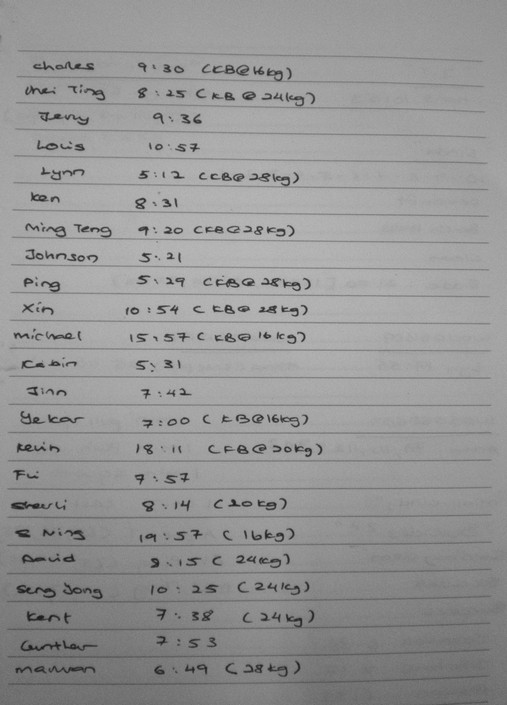 Charles 9:30 (KB@16kg)
Chei Ting 8:25 (KB @ 24kg)
Jerry 9:36
Louis 10:57
Lynn 5:12 (KB@28kg)
Ken 8:31
Ming Teng 9:20 (KB@28kg)
Johnson 5:21
Ping 5:29 (KB@ 28kg)
Xin 10:54 (KB@ 28kg)
Michael 15:57 (KB@ 16kg)
5:31
Jinn 7:42
Yekar 7:00 (KB@16kg)
Kevin 18:11 (KB@20kg)
Fui 7:57
8:14 (20kg)
S Ning 19:57 (16kg)
David :15 (24kg)
Seng Jong 10:25 (24kg)
Kent 7:38 (24kg)
Gunther 7:53
6:49 (28kg)